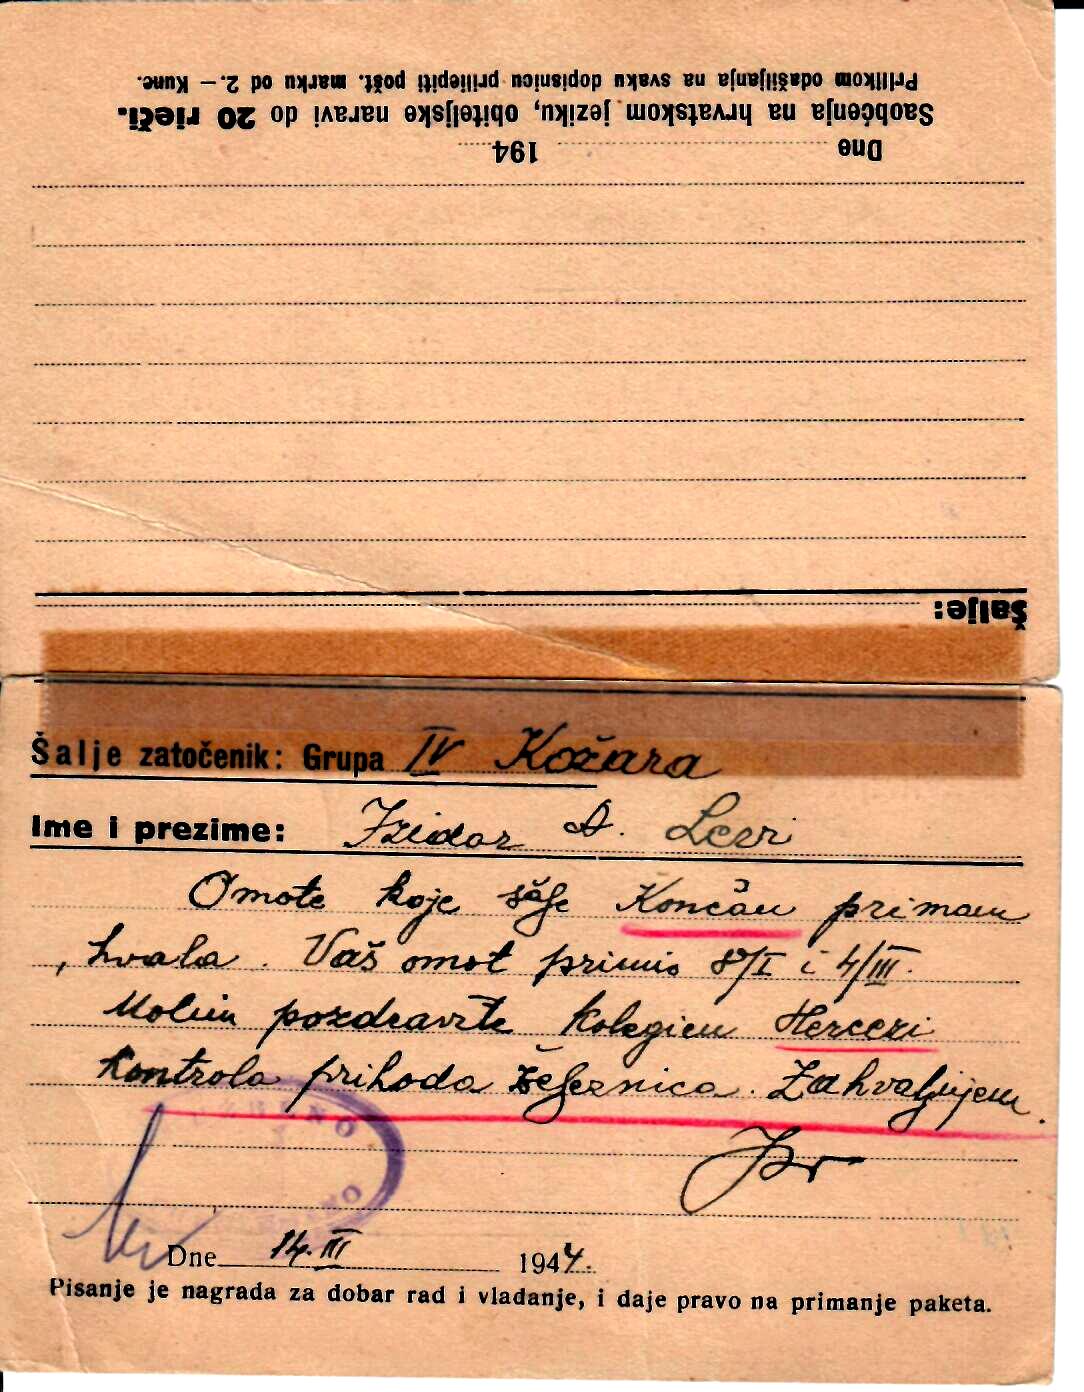 Prilikom odašiljanja na svaku dopisnicu prilijepiti pošt. marku od 2.— Kune.
Saobćenja na hrvatskom jeziku, obiteljske naravi do 20 rieči.
Dne 194
Šalje:
Šalje zatočenik: Grupa IV Kožara
Ime i prezime: Izidor A. Levi
Omote koje šalje Končan primam
, hvala. Vaš omot primio 8/I i 4/III.
Molim pozdravite kolegicu Herceri
Kontrola prihoda željeznica. Zahvaljujem.
Dne 14. III 1944.
Pisanje je nagrada za dobar rad i vladanje, i daje pravo na primanje paketa.